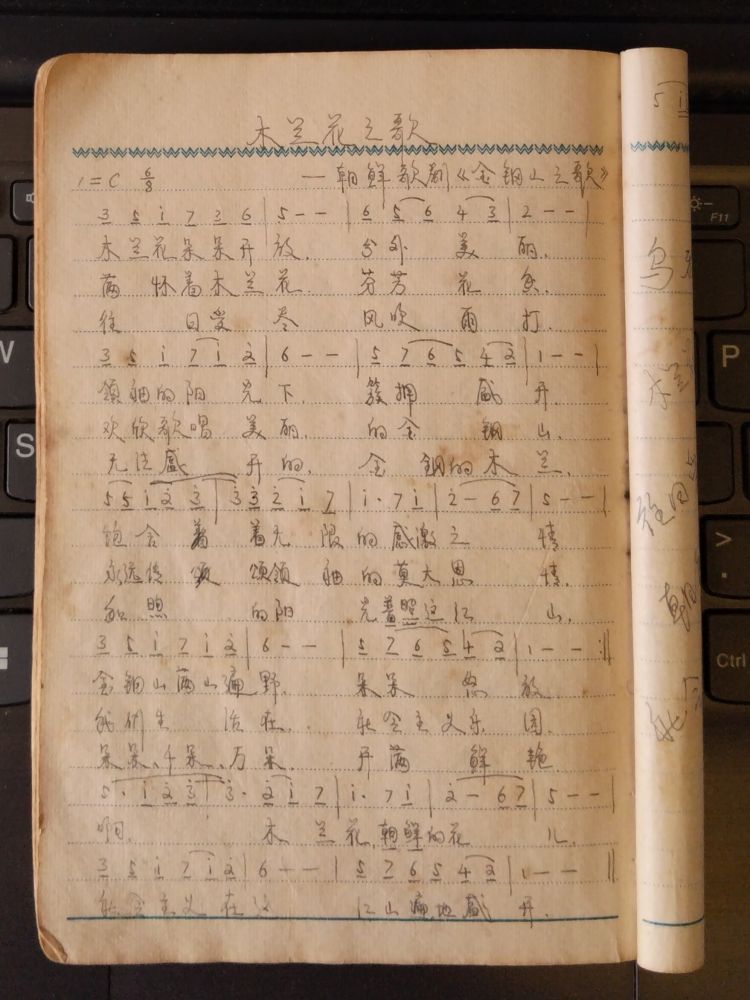 木兰花之歌
1=C 6/8 —朝鲜歌剧《金钢山之歌》
3 5 i 7 3 6 | 5 - - | 6 5 6 4 3 | 2 - - |
木兰花朵朵开放. 分外美丽.
满怀着木兰花. 芬芳花香.
往日受尽风吹雨打.
3 5 i 7 i 2 | 6 - - | 5 7 6 5 4 2 | 1 - - |
领袖的阳光下. 簇拥盛开.
欢欣歌唱美丽. 的金钢山.
无法盛开的. 金钢的木兰.
5 5 i 2 3 | 3 3 2 i 7 | i · 7 i | 2 - 6 7 | 5 - - |
饱含着着无限的感激之情
永远传颂颂领袖的莫大恩情.
和照的阳光普照这江山.
3 5 i 7 i 2 | 6 - - | 5 7 6 5 4 2 | 1 - - :||
金钢山满山遍野. 朵朵怒放.
我们生活在. 社会主义乐园.
朵朵、千朵、万朵. 开满鲜艳
5 · i 2 3 | 3 · 2 i 7 | i · 7 i | 2 - 6 7 | 5 - - |
啊. 木兰花.朝鲜的花儿.
3 5 i 7 i 2 | 6 - - | 5 7 6 5 4 2 | 1 - - ||
社会主义在这江山遍地盛开.